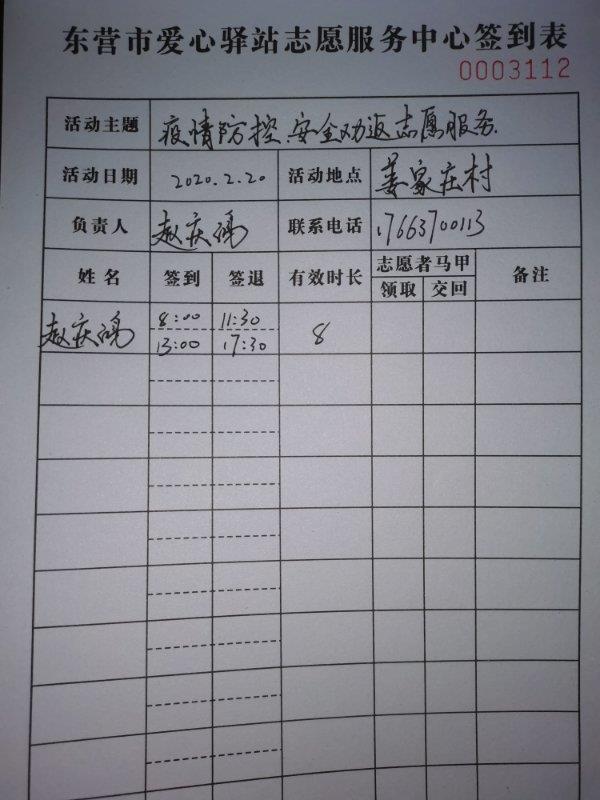 东营市爱心驿站志愿服务中心签到表
0003112
活动主题 疫情防控、安全劝返志愿服务.
活动日期 2020.2.20 活动地点 姜家庄村
负责人 赵庆鸿 联系电话 17663700113
姓名 签到 签退 有效时长 志愿者马甲 备注
领取 交回
赵庆鸿 8:00 11:30 8
13:00 17:30